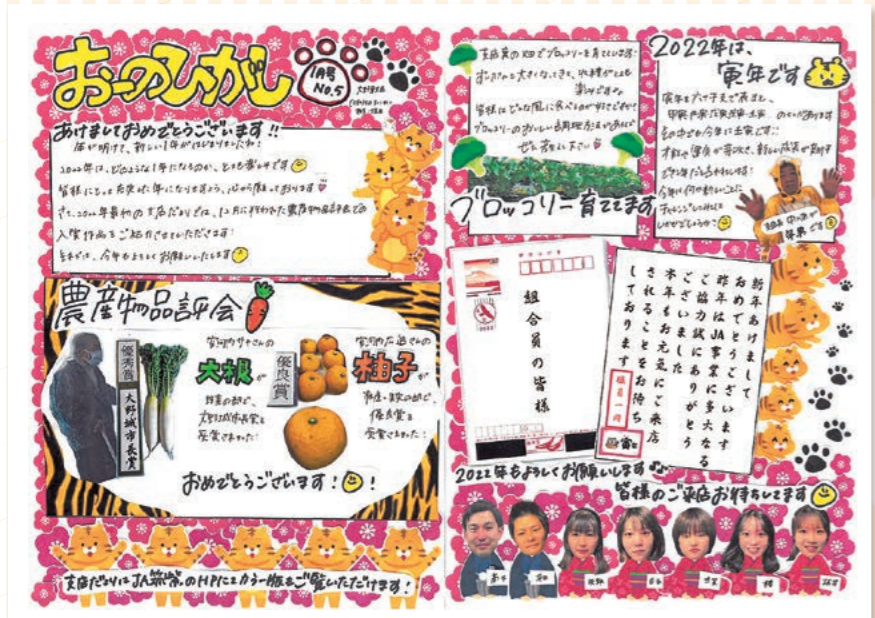 おーのひがし
1月号
NO.5
あけましておめでとうございます!!
年が明けて、新しい1年がはじまりましたね!
2022年は、どのような1年になるのか、とても楽しみです
皆様にとって充実した年になりますよう、心から願っております
さて、2022年最初の支店だよりでは、12月に行われた農産物品評会での
入賞作品をご紹介させていただきます!
今年もよろしくお願いいたします
農産物品評会
優秀賞
大野城市長賞
さんの
大根が
野菜の部で、
大野城市長賞を
受賞されました!
優良賞
さんの
柚子が
果樹の部で、
優良賞を
受賞されました!
おめでとうございます!!
支店だよりはJA筑紫のHPにてカラー版をご覧いただけます!
支店裏の畑でブロッコリーを育てています!
だんだんと大きくなってきて、収穫がとても
楽しみです
皆様はどんな風に食べるのが好きですか?
ブロッコリーのおいしい調理方法があれば
ぜひ教えて下さい
ブロッコリー育ててます
2022年は、
寅年です
その中でも今年は壬寅です!
今年は何か新しいことに
チャレンジしてみては
いかがでしょうか?
年男です
2022
組合員の皆様
新年あけまして
おめでとうございます
昨年はJA事業に多大なる
ご協力誠にありがとう
ございました
本年もお元気にご来店
されることをお待ち
しております
職員一同
2022年もよろしくお願いします
皆様のご来店お待ちしてます